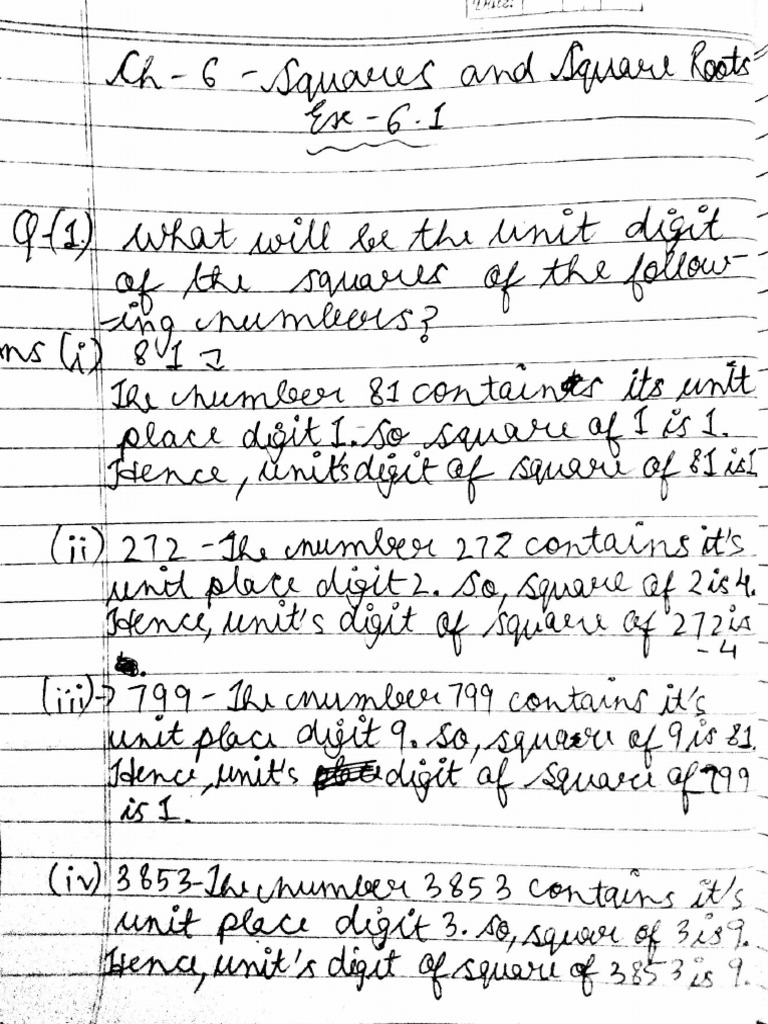 Date:
Ch - 6 - Squares and Square Roots
Ex - 6.1
Q-(1) What will be the unit digit
of the squares of the follow-
-ing numbers?
Ans (i) 81 →
The number 81 contains its unit
place digit 1. So square of 1 is 1.
Hence, unit's digit of square of 81 is 1
(ii) 272 - The number 272 contains it's
unit place digit 2. So, square of 2 is 4.
Hence, unit's digit of square of 272 is
- 4
(iii)→ 799 - The number 799 contains it's
unit place digit 9. So, square of 9 is 81.
Hence, unit's digit of square of 799
is 1.
(iv) 3853 - The number 3853 contains it's
unit place digit 3. So, square of 3 is 9.
Hence, unit's digit of square of 3853 is 9.